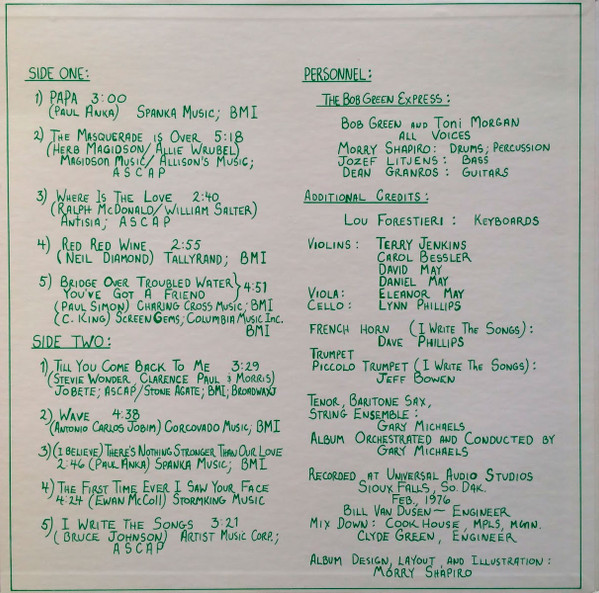 SIDE ONE:
1) PAPA 3:00
(PAUL ANKA) SPANKA MUSIC; BMI
2) THE MASQUERADE IS OVER 5:18
(HERB MAGIDSON/ALLIE WRUBEL)
MAGIDSON MUSIC/ALLISON'S MUSIC;
ASCAP
3) WHERE IS THE LOVE 2:40
(RALPH MCDONALD/WILLIAM SALTER)
ANTISIA; ASCAP
4) RED RED WINE 2:55
(NEIL DIAMOND) TALLYRAND; BMI
5) BRIDGE OVER TROUBLED WATER
YOU'VE GOT A FRIEND } 4:51
(PAUL SIMON) CHARING CROSS MUSIC; BMI
(C. KING) SCREEN GEMS; COLUMBIA MUSIC INC.
BMI
SIDE TWO:
1) TILL YOU COME BACK TO ME 3:29
(STEVIE WONDER, CLARENCE PAUL & MORRIS)
JOBETE; ASCAP/STONE AGATE; BMI; BROADWAXJ
2) WAVE 4:38
(ANTONIO CARLOS JOBIM) CORCOVADO MUSIC; BMI
3) (I BELIEVE) THERE'S NOTHING STRONGER THAN OUR LOVE
2:46 (PAUL ANKA) SPANKA MUSIC; BMI
4) THE FIRST TIME EVER I SAW YOUR FACE
4:24 (EWAN MCCOLL) STORMKING MUSIC
5) I WRITE THE SONGS 3:21
(BRUCE JOHNSON) ARTIST MUSIC CORP.;
ASCAP
PERSONNEL:
THE BOB GREEN EXPRESS:
BOB GREEN AND TONI MORGAN
ALL VOICES
MORRY SHAPIRO: DRUMS; PERCUSSION
JOZEF LITJENS: BASS
DEAN GRANROS: GUITARS
ADDITIONAL CREDITS:
LOU FORESTIERI: KEYBOARDS
VIOLINS: TERRY JENKINS
CAROL BESSLER
DAVID MAY
DANIEL MAY
VIOLA: ELEANOR MAY
CELLO: LYNN PHILLIPS
FRENCH HORN (I WRITE THE SONGS):
DAVE PHILLIPS
TRUMPET
PICCOLO TRUMPET (I WRITE THE SONGS):
JEFF BOWEN
TENOR, BARITONE SAX,
STRING ENSEMBLE:
GARY MICHAELS
ALBUM ORCHESTRATED AND CONDUCTED BY
GARY MICHAELS
RECORDED AT UNIVERSAL AUDIO STUDIOS
SIOUX FALLS, SO. DAK.
FEB., 1976
BILL VAN DUSEN ~ ENGINEER
MIX DOWN: COOK HOUSE, MPLS, MINN.
CLYDE GREEN, ENGINEER
ALBUM DESIGN, LAYOUT, AND ILLUSTRATION:
MORRY SHAPIRO